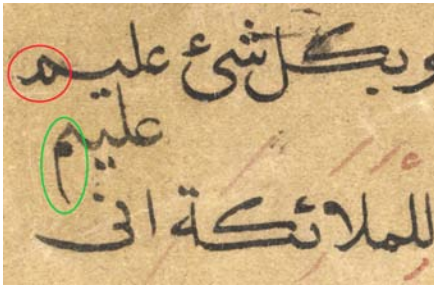 وبكل شئ عليم
عليم
للملائكة انى